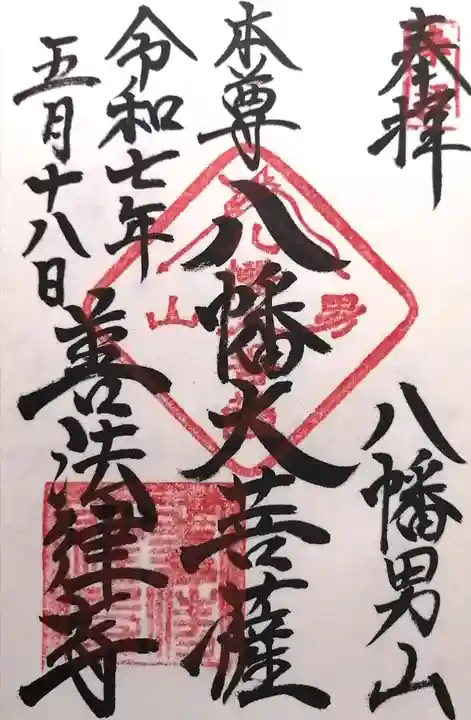 奉拝
八幡男山
本尊
八幡大菩薩
令和七年
五月十八日
善法律寺
男
山